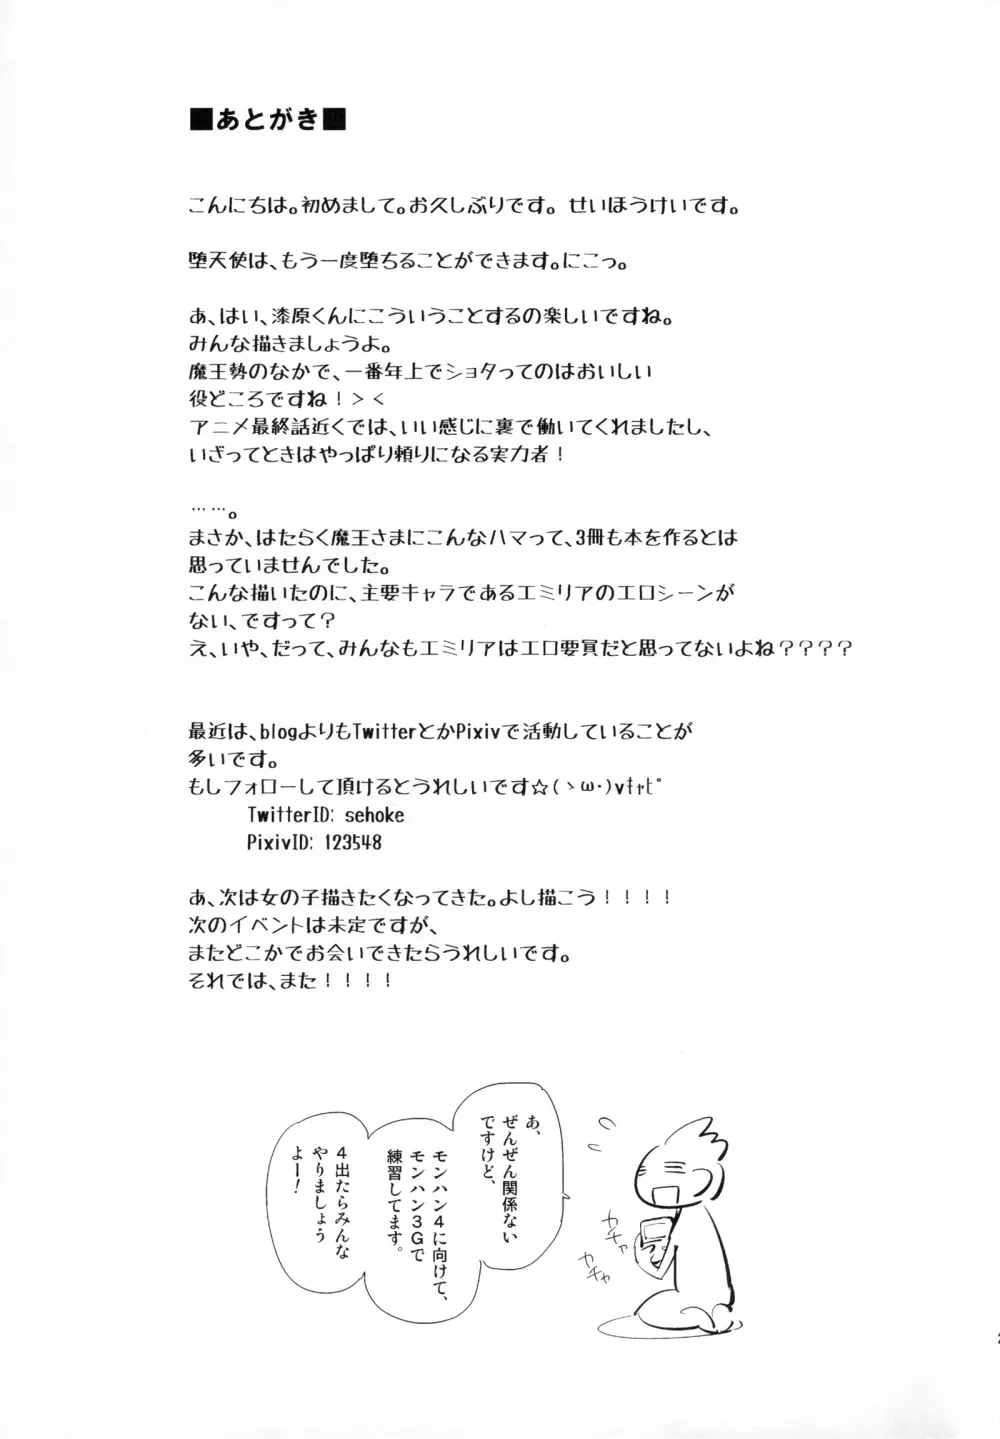 ■あとがき■
こんにちは。初めまして。お久しぶりです。 せいほうけいです。
堕天使は、もう一度堕ちることができます。にこっ。
あ、はい、漆原くんにこういうことするの楽しいですね。
みんな描きましょうよ。
魔王勢のなかで、一番年上でショタってのはおいしい
役どころですね！＞＜
アニメ最終話近くでは、いい感じに裏で働いてくれましたし、
いざってときはやっぱり頼りになる実力者！
……。
まさか、はたらく魔王さまにこんなハマって、3冊も本を作るとは
思っていませんでした。
こんな描いたのに、主要キャラであるエミリアのエロシーンが
ない、ですって？
え、いや、だって、みんなもエミリアはエロ要員だと思ってないよね？？？？
最近は、blogよりもTwitterとかPixivで活動していることが
多いです。
もしフォローして頂けるとうれしいです☆(ゝω・)vｷｬﾋﾟ
TwitterID: sehoke
PixivID: 123548
あ、次は女の子描きたくなってきた。よし描こう！！！！
次のイベントは未定ですが、
またどこかでお会いできたらうれしいです。
それでは、また！！！！
あ、
ぜんぜん関係ない
ですけど、
モンハン４に向けて、
モンハン３Ｇで
練習してます。
４出たらみんな
やりましょう
よー！
カチャ
カチャ